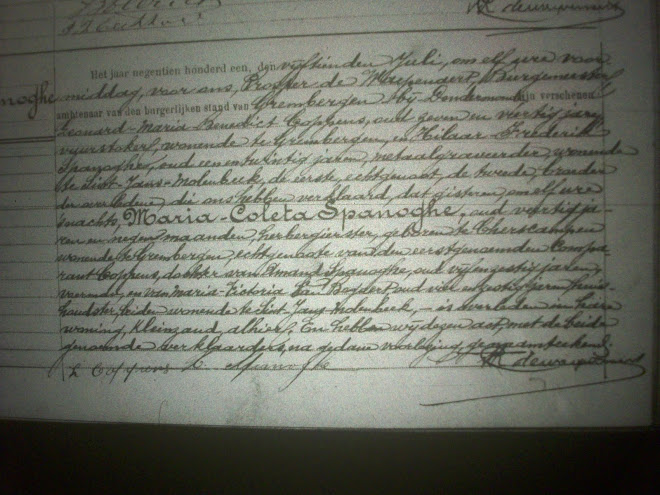 noghe
Het jaar negentien honderd een, den vijftienden Juli, om elf ure voor
middag, voor ons, Prosper de Burgemeester
ambtenaar van den burgerlijken stand van Grembergen bij Dendermonde zijn verschenen
Leonard-Maria Benedict Coppens, oud zeven en veertig jaren,
vuurstoker, wonende te Grembergen, en Hilaar Frederik
Spanoghe, oud een en twintig jaren, metaalgraveerder, wonende
te Sint-Jans-Molenbeek, de eerste, echtgenoot, de tweede, broeder
der overledene, die ons hebben verklaard, dat gisteren, om elf ure
'snachts, Maria-Coleta Spanoghe, oud veertig ja-
ren en negen maanden, herbergierster, geboren te Cherscampen
wonende te Grembergen, echtgenoote van den eerstgenoemden Compa-
rant Coppens, dochter van Amand Spanoghe, oud jaren,
en van Maria-Victoria Van oud vier en zestig jaren, huis-
houdster, beiden wonende te Sint-Jans-Molenbeek, - is overleden in hare
woning, Kleinzand, alhier. En hebben wij dezen act, met de beide
genoemde verklaarders, na gedane voorlezing, geteekend.
L Coppens Spanoghe